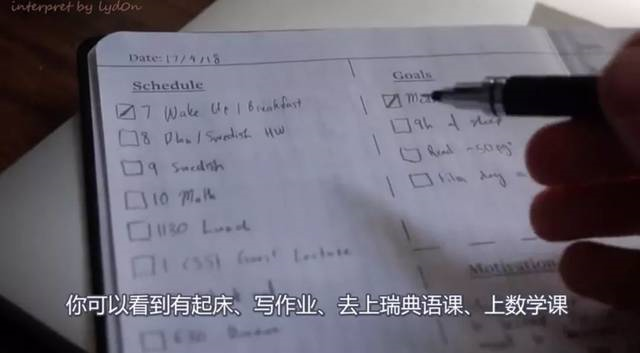 interpret by lydOn
Date: 17/9/18
Schedule
7 Wake Up / Breakfast
8 Plan / Swedish HW
9 Swedish
10 Math
1130 Lunch
1 (SS) Guest Lecture
630
Goals
9h of sleep
Read ~50 pg
Film day
Motivation
你可以看到有起床、写作业、去上瑞典语课、上数学课